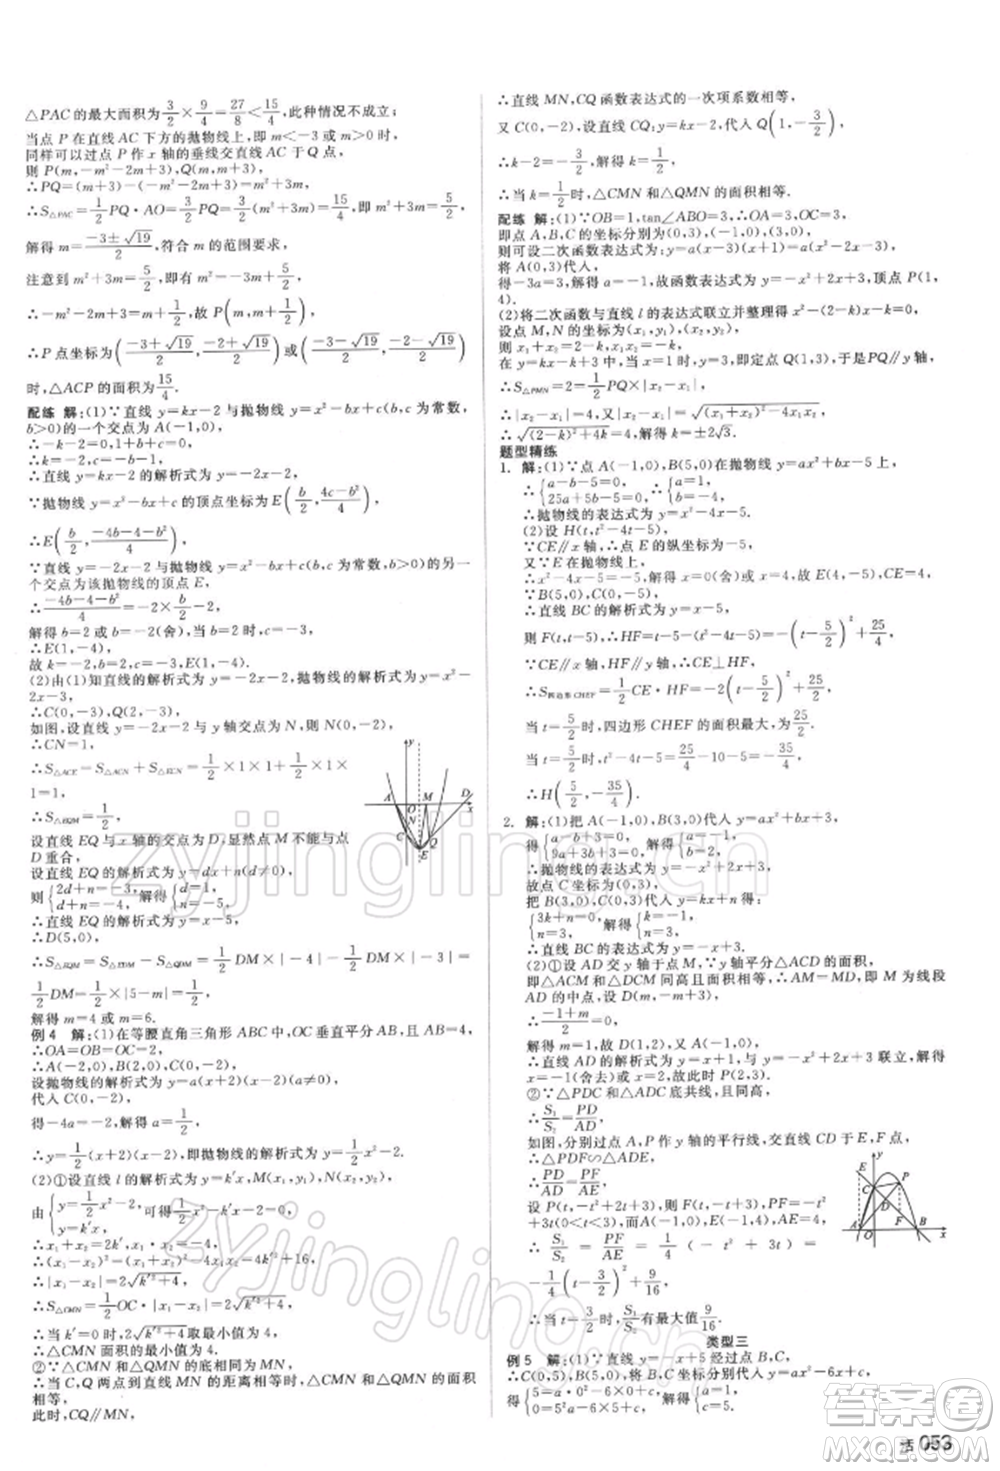 △PAC的最大面积为3/2×9/4=27/8<15/4,此种情况不成立;
当点 P 在直线 AC 下方的抛物线上,即 m<-3 或 m>0 时,
同样可以过点 P 作 x 轴的垂线交直线 AC 于 Q 点,
则 P(m,-m²-2m+3),Q(m,m+3),
∴PQ=(m+3)-(-m²-2m+3)=m²+3m,
∴S△PAC=1/2PQ·AO=3/2(m²+3m)=15/4,即 m²+3m=5/2,
解得 m=(-3±√19)/2,符合 m 的范围要求,
注意到 m²+3m=5/2,即有 m²+2m=5/2-m,
配练 解:(1)∵直线 y=kx-2 与抛物线 y=x²-bx+c(b,c为常数,
b>0)的一个交点为 A(-1,0),
∴-k-2=0,1+b+c=0,
∴k=-2,c=-1-b,
∴直线 y=kx-2 的解析式为 y=-2x-2,
∵抛物线 y=x²-bx+c 的顶点坐标为 E(b/2,(4c-b²)/4),
∴E(b/2,(-4b-4-b²)/4),
∵直线 y=-2x-2 与抛物线 y=x²-bx+c(b,c为常数,b>0)的另一
个交点为该抛物线的顶点 E,
∴(-4b-4-b²)/4=-2×b/2-2,
解得 b=2 或 b=-2(舍),当 b=2 时,c=-3,
∴E(1,-4),
故 k=-2,b=2,c=-3,E(1,-4);
(2)由(1)知直线的解析式为 y=-2x-2,抛物线的解析式为 y=x²
-2x-3,
∴C(0,-3),Q(2,-3),
如图,设直线 y=-2x-2 与 y 轴交点为 N,则 N(0,-2),
∴CN=1,
∴S△ACE=S△ACN+S△ECN=1/2×1×1+1/2×1×
1=1,
∴S△EQM=1/2,
设直线 EQ 与 x 轴的交点为 D,显然点 M 不能与点
D 重合,
设直线 EQ 的解析式为 y=dx+n(d≠0),
则{2d+n=-3, d+n=-4, 解得{d=1, n=-5,
∴直线 EQ 的解析式为 y=x-5,
∴D(5,0),
∴S△EQM=S△EDM-S△QDM=1/2DM×|-4|-1/2DM×|-3|=
1/2DM=1/2×|5-m|=1/2,
解得 m=4 或 m=6.
例4 解:(1)在等腰直角三角形 ABC 中,OC 垂直平分 AB,且 AB=4,
∴OA=OB=OC=2,
∴A(-2,0),B(2,0),C(0,-2),
设抛物线的解析式为 y=a(x+2)(x-2)(a≠0),
代入 C(0,-2),
得-4a=-2,解得 a=1/2,
∴y=1/2(x+2)(x-2),即抛物线的解析式为 y=1/2x²-2.
(2)①设直线 l 的解析式为 y=k′x,M(x₁,y₁),N(x₂,y₂),
由{y=1/2x²-2, y=k′x, 可得1/2x²-k′x-2=0,
∴x₁+x₂=2k′,x₁·x₂=-4,
∴(x₁-x₂)²=(x₁+x₂)²-4x₁x₂=4k′²+16,
∴|x₁-x₂|=2√(k′²+4),
∴S△CMN=1/2OC·|x₁-x₂|=2√(k′²+4),
∴当 k′=0 时,2√(k′²+4)取最小值为 4.
∴△CMN 面积的最小值为 4.
②∵△CMN 与△QMN 的面积相等,
∴当 C,Q 两点到直线 MN 的距离相等时,△CMN 和△QMN 的
面积相等,
此时,CQ∥MN,
∴直线 MN,CQ 函数表达式的一次项系数相等,
又 C(0,-2),设直线 CQ:y=kx-2,代入 Q(1,-3/2),
∴k-2=-3/2,解得 k=1/2,
∴当 k=1/2时,△CMN 和△QMN 的面积相等.
配练 解:(1)∵OB=1,tan∠ABO=3,∴OA=3,OC=3,
即点 A,B,C 的坐标分别为(0,3),(-1,0),(3,0),
则可设二次函数表达式为 y=a(x-3)(x+1)=a(x²-2x-3),
将 A(0,3)代入,
得-3a=3,解得 a=-1,故函数表达式为 y=-x²+2x+3,顶点 P(1,
4).
(2)将二次函数与直线 l 的表达式联立并整理得 x²-(2-k)x-k=0,
设点 M,N 的坐标为(x₁,y₁),(x₂,y₂),
则 x₁+x₂=2-k,x₁x₂=-k,
在 y=kx-k+3 中,当 x=1 时,y=3,即定点 Q(1,3),于是 PQ∥y 轴,
∴S△PMN=2=1/2PQ×|x₁-x₂|,
∴|x₂-x₁|=4,又|x₂-x₁|=√((x₁+x₂)²-4x₁x₂),
∴√((2-k)²+4k)=4,解得 k=±2√3.
题型精练
1. 解:(1)∵点 A(-1,0),B(5,0)在抛物线 y=ax²+bx-5 上,
∴{a-b-5=0, 25a+5b-5=0, ∴{a=1, b=-4,
∴抛物线的表达式为 y=x²-4x-5.
(2)设 H(t,t²-4t-5),
∵CE∥x 轴,∴点 E 的纵坐标为-5,
又∵E 在抛物线上,
∴x²-4x-5=-5,∴x=0(舍)或 x=4,故 E(4,-5),CE=4,
∵B(5,0),C(0,-5),
∴直线 BC 的解析式为 y=x-5,
则 F(t,t-5),∴HF=t-5-(t²-4t-5)=-(t-5/2)²+25/4,
∵CE∥x 轴,HF∥y 轴,∴CE⊥HF,
∴S四边形CHEF=1/2CE·HF=-2(t-5/2)²+25/2,
当 t=5/2时,四边形 CHEF 的面积最大,为25/2.
当 t=5/2时,t²-4t-5=25/4-10-5=-35/4,
∴H(5/2,-35/4).
2. 解:(1)把 A(-1,0),B(3,0)代入 y=ax²+bx+3,
得{a-b+3=0, 9a+3b+3=0, 解得{a=-1, b=2,
∴抛物线的表达式为 y=-x²+2x+3,
故点 C 坐标为(0,3),
把 B(3,0),C(0,3)代入 y=kx+n 得
{3k+n=0, n=3, 解得{k=-1, n=3,
∴直线 BC 的表达式为 y=-x+3;
(2)①设 AD 交 y 轴于点 M,∵y 轴平分△ACD 的面积,
即△ACM 和△DCM 同高且面积相等,∴AM=MD,即 M 为线段
AD 的中点,设 D(m,-m+3),
∴(-1+m)/2=0,
解得 m=1,故点 D(1,2),又 A(-1,0),
∴直线 AD 的解析式为 y=x+1,与 y=-x²+2x+3 联立,解得
x=-1(舍去)或 x=2,故点 P(2,3);
②∵△PDC 与△ADC 底共线,且同高,
∴S₁/S₂=PD/AD,
如图,分别过点 A,P 作 y 轴的平行线,交直线 CD 于 E,F 点,
∴△PDF∽△ADE,
∴PD/AD=PF/AE,
设 P(t,-t²+2t+3),则 F(t,-t+3),PF=-t²
+3t(0<t<3),又 A(-1,0),E(-1,4),AE=4,
∴S₁/S₂=PF/AE=1/4(-t²+3t)=
-1/4(t-3/2)²+9/16,
∴当 t=3/2时,S₁/S₂有最大值9/16.
类型三
例5 解:(1)∵直线 y=-x+5 经过点 B,C,
∴C(0,5),B(5,0),将点 B,C 坐标分别代入 y=ax²-6x+c,
得{5=a·0²-6×0+c, 0=a·5²-6×5+c, 解得{a=1, c=5,
活053
答案圈
MXQE.COM
zyjingling.cn
zyjingling.cn